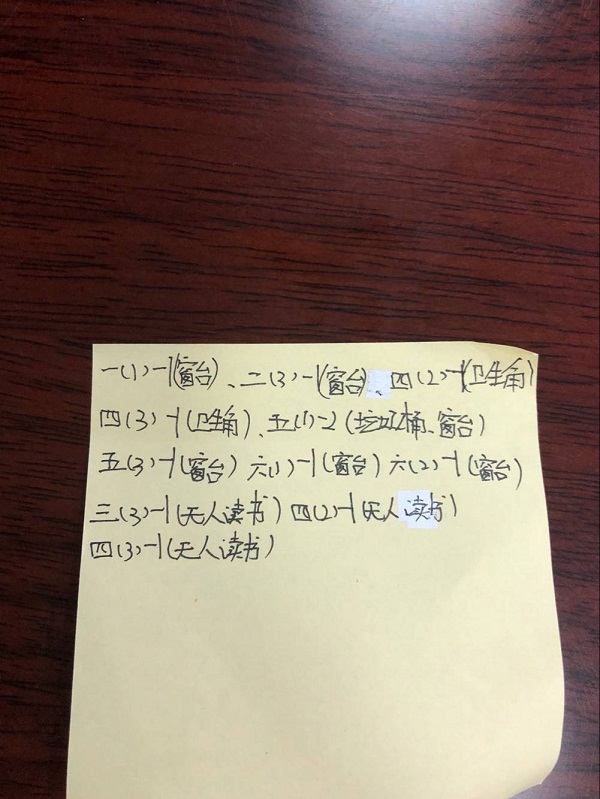 一(1)-1(窗台)、二(3)-1(窗台)、四(2)-1(卫生角)
四(3)-1(卫生角)、五(1)-2(垃圾桶、窗台)
五(3)-1(窗台) 六(1)-1(窗台) 六(2)-1(窗台)
三(3)-1(无人读书) 四(2)-1(无人读书)
四(3)-1(无人读书)